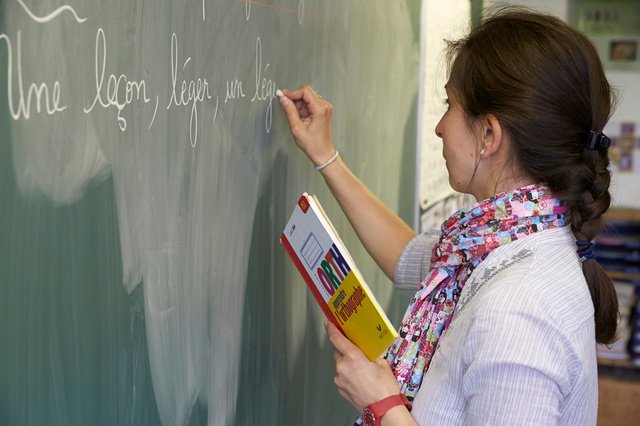 Une leçon, léger, un lég
ORTH
apprendre
l'orthographe